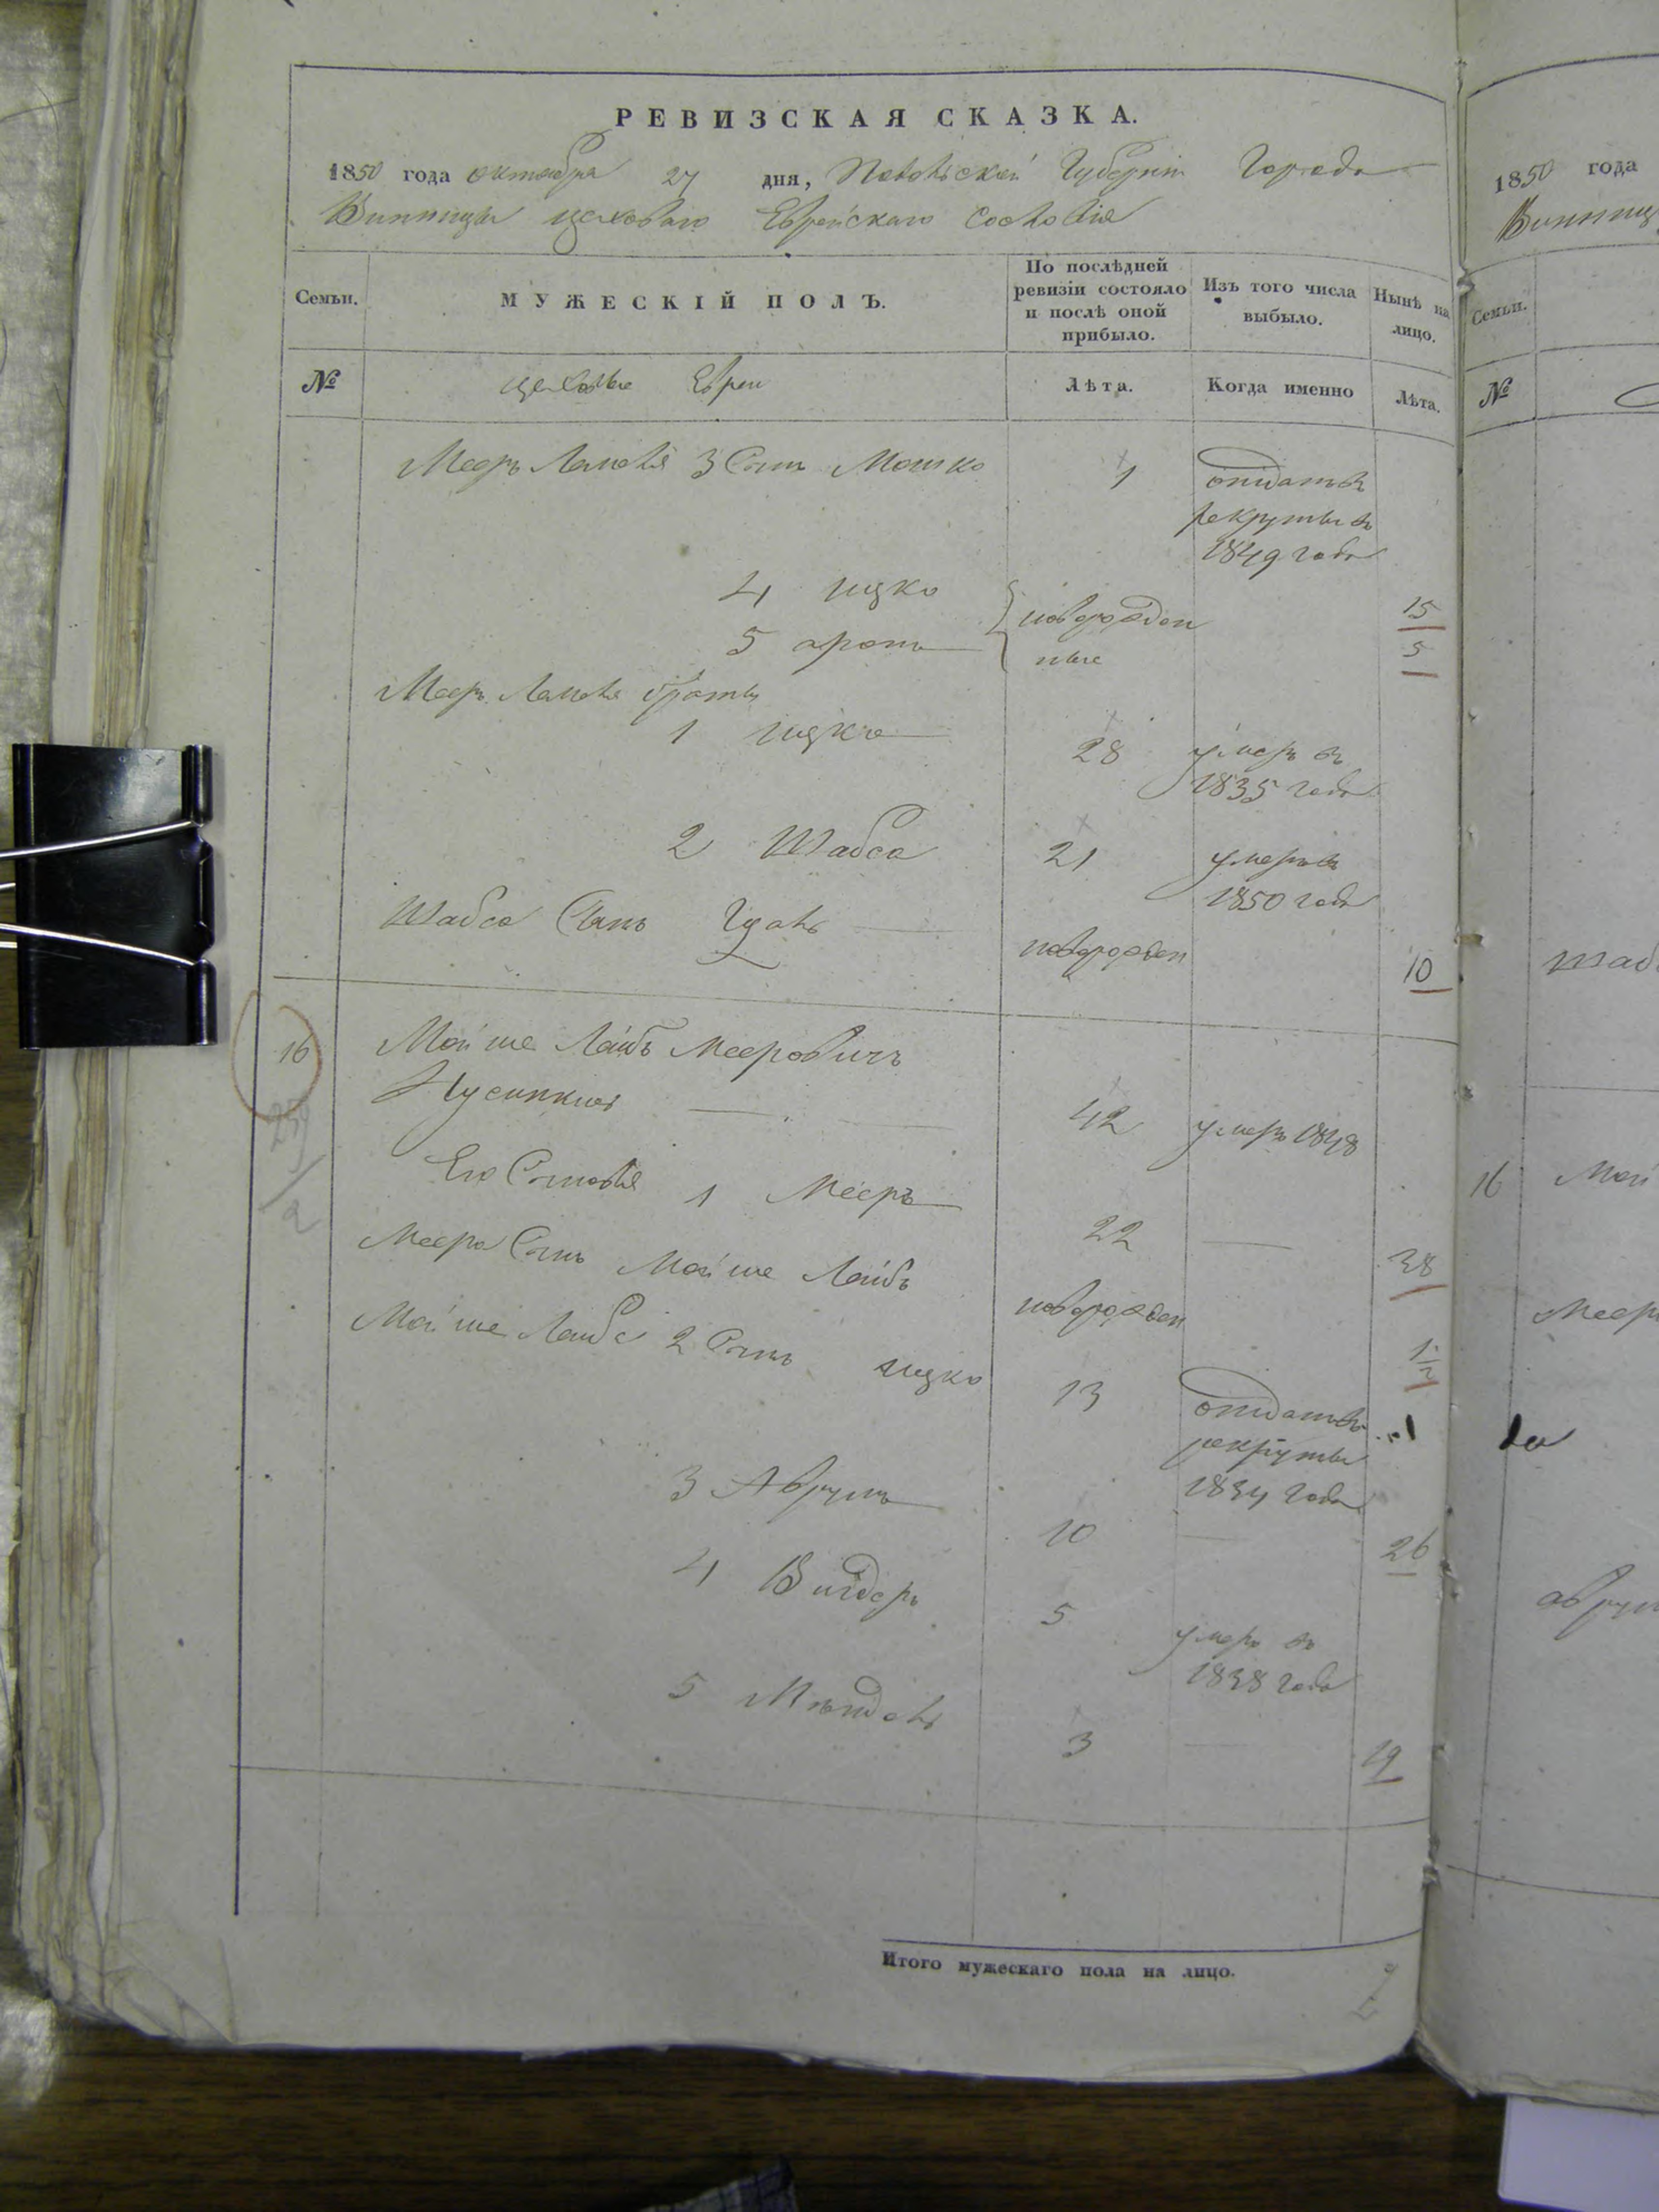 РЕВИЗСКАЯ СКАЗКА.
1850 года октября 27 дня, Подольской Губернии Города
Винницы цеховаго Еврейскаго Сословія
Семьи.
МУЖЕСКІЙ ПОЛЪ.
По послѣдней ревизіи состояло и послѣ оной прибыло.
Изъ того числа выбыло.
Нынѣ на лицо.
№
цеховые Евреи
Лѣта.
Когда именно
Лѣта.
Мееръ 3 Сынъ Мошко 1 отданъ въ
рекруты въ
1849 года
4 Ицко новорожден 15
5 аронъ ные 5
Меер братья
1 Ицко 28 умеръ въ
1835 года
2 Шабса 21 умеръ въ
1850 года
Шабса Сынъ новорожден 10
16 Мойше Лейбъ Мееровичъ
42 умеръ 1848
Его Сыновья 1 Мееръ 22 38
Меера Сынъ Мойше Лейбъ новорожден 1/2
Мойше Лейба 2 Сынъ Ицко 13 отданъ въ
рекруты
1834 года
3 Аврумъ 10 26
4 Вигдеръ 5 умеръ въ
1838 года
5 3 19
Итого мужескаго пола на лицо.
1850 года
Винниц
Семьи.
№
Шаб
16 Мой
Меер
аврум